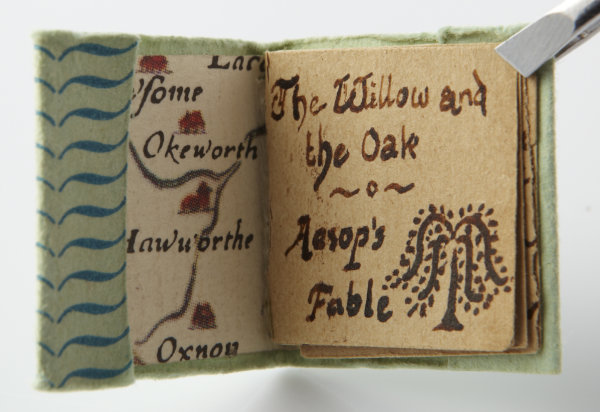 some
Okeworth
Hawworthe
Oxnou
The Willow and
the Oak
Aesop's
Fable